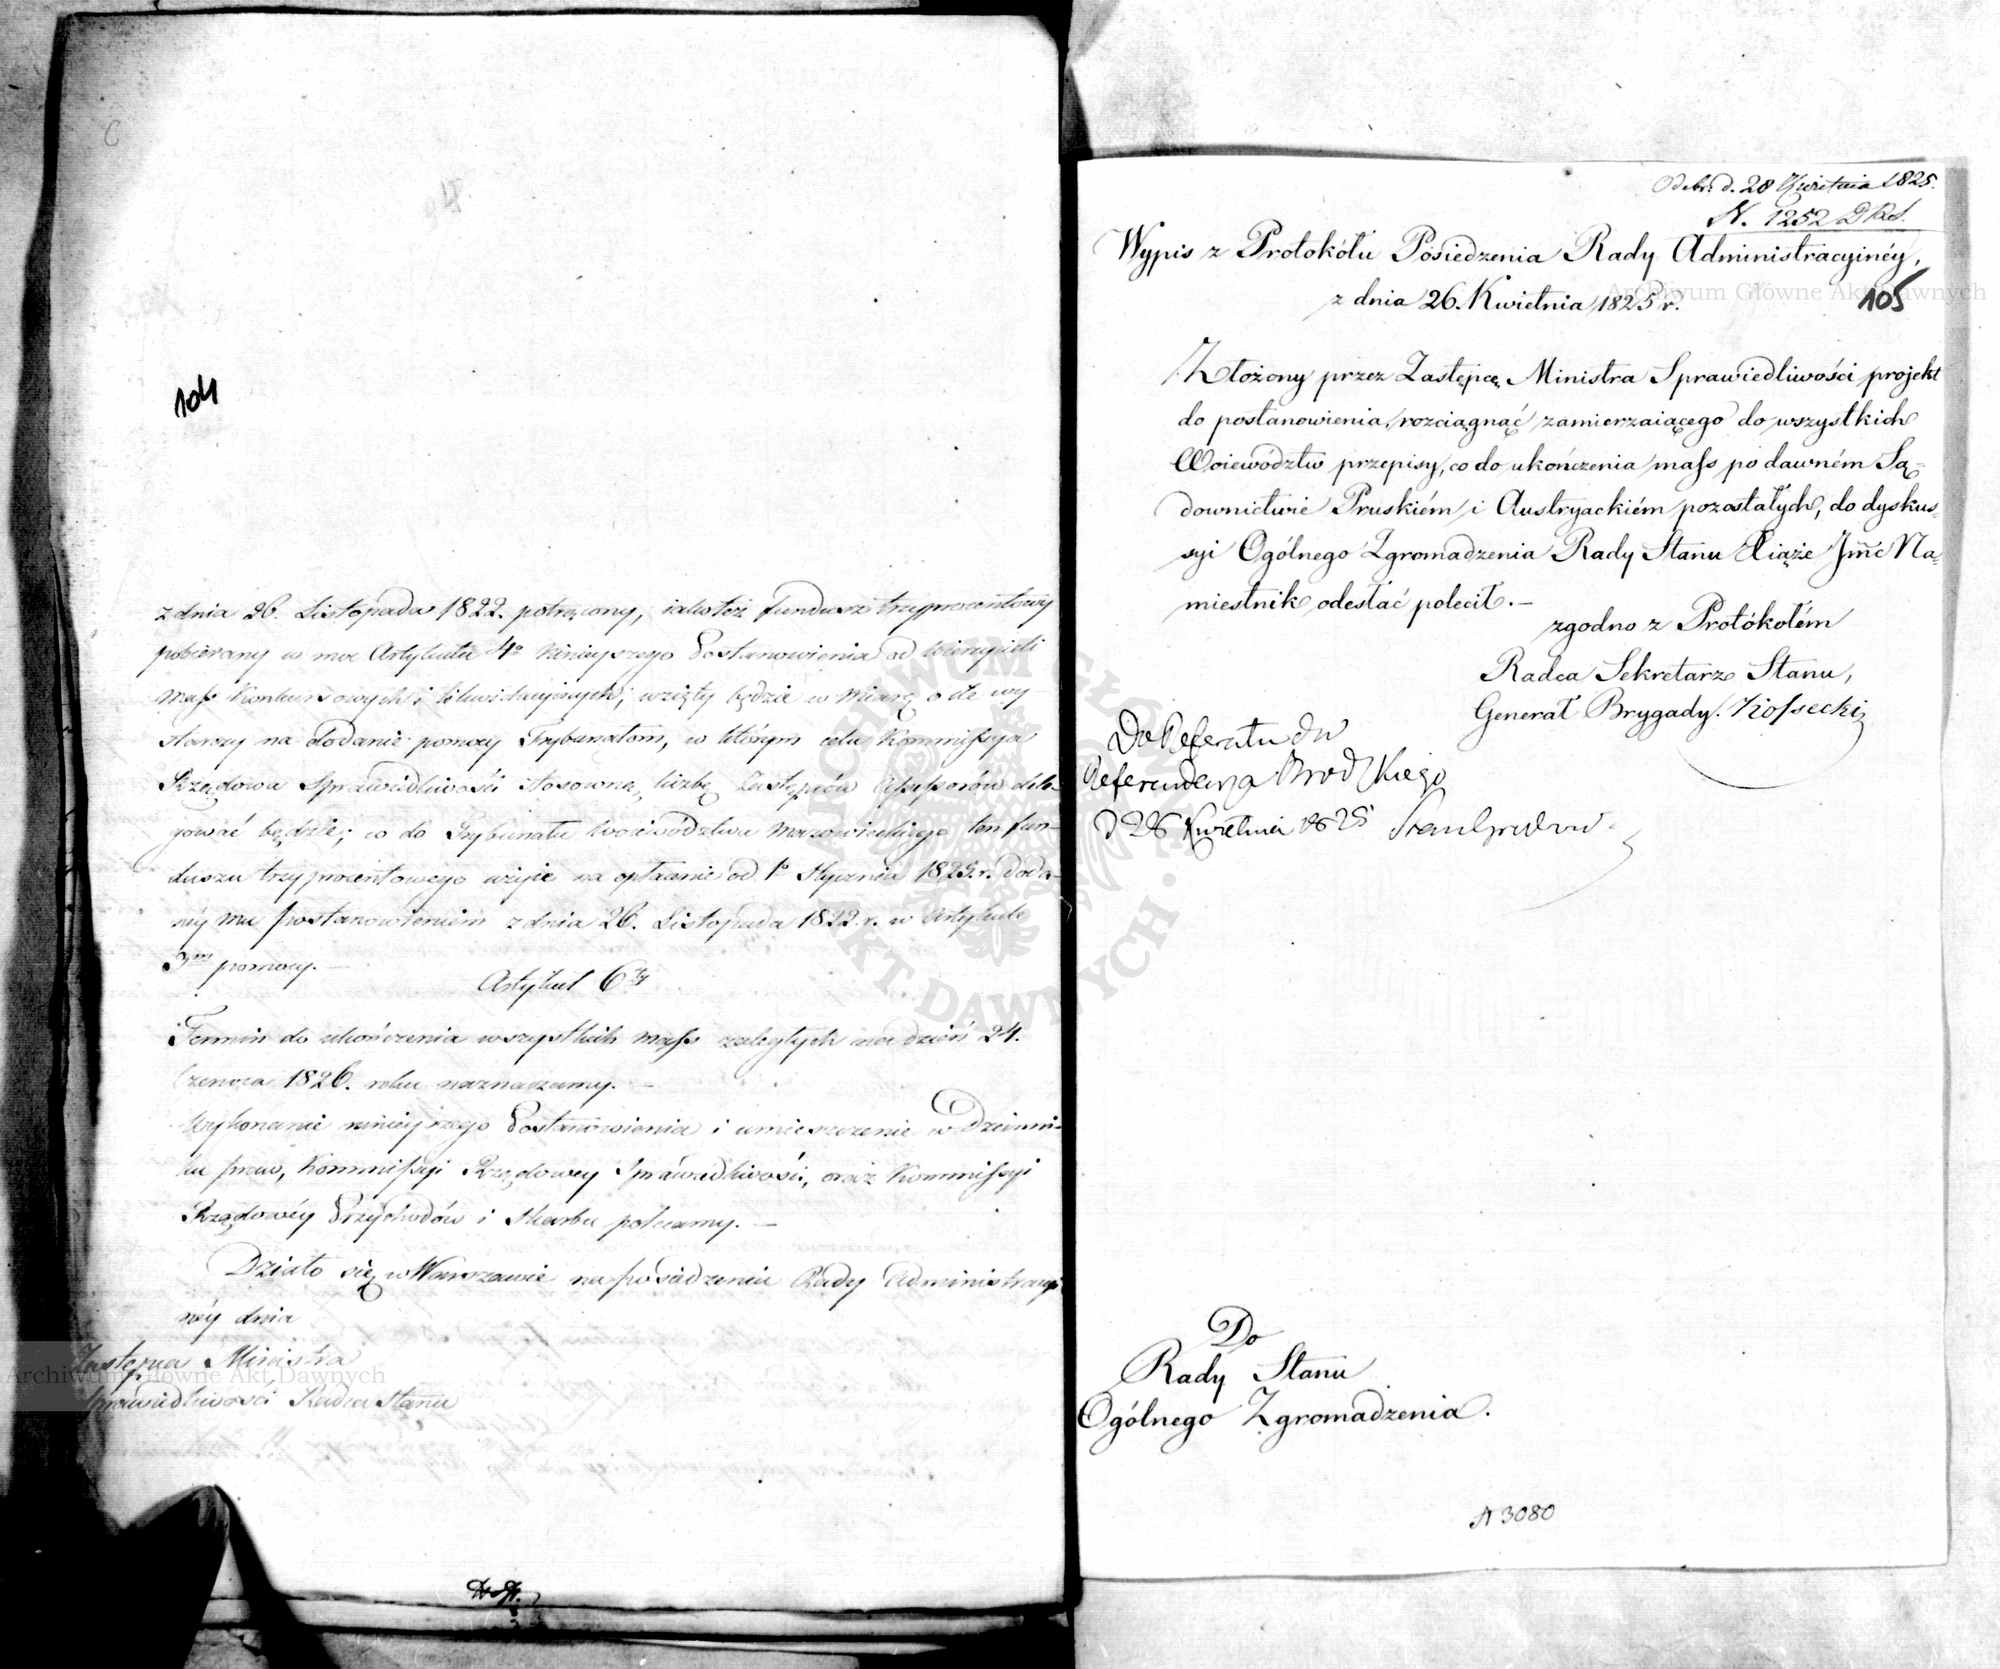 104
z dnia 26. Listopada 1822. potrącony, iakoteż fundusz trzyprocentowy
pobierany w moc Artykułu 4º ninieyszego Postanowienia od wierzycieli
mass konkursowych i likwidacyinych, wzięty będzie w miarę o ile wy-
starczy na dodanie pomocy Trybunałom, w którym celu Kommissya
Rządowa Sprawiedliwości stosowną liczbę Zastępców Assessorów dele-
gować będzie; co do Trybunału Woiewództwa Mazowieckiego ten fun-
duszu trzyprocentowego użyie na opłacenie od 1º Stycznia 1825. r. doda-
néy mu postanowieniem z dnia 26. Listopada 1822. r. w Artykule
3m pomocy. —
Artykuł 6ty
Termin do ukończenia wszystkich mass zaległych na dzień 24.
Czerwca 1826. roku naznaczamy. —
Wykonanie ninieyszego Postanowienia i umieszczenie w Dzienni-
ku praw, Kommissyi Rządowey Sprawiedliwości, oraz Kommissyi
Rządowéy Przychodów i Skarbu polecamy. —
Działo się w Warszawie na posiedzeniu Rady Administracyi
néy dnia
Zastępca Ministra
Sprawiedliwości Radca Stanu
Odebr. d. 28 Kwietnia 1825.
N. 1252 D.R.S.
Wypis z Protokółu Posiedzenia Rady Administracyinéy,
z dnia 26. Kwietnia 1825 r.
105
Złożony przez Zastępcę Ministra Sprawiedliwości projekt
do postanowienia, rozciągnąć zamierzaiącego do wszystkich
Woiewództw przepisy, co do ukończenia mass po dawném Są-
downictwie Pruskiém i Austryackiém pozostałych, do dyskus-
syi Ogólnego Zgromadzenia Rady Stanu Xiąże Jmć Na-
miestnik odesłać polecił. —
zgodno z Protókółém
Radca Sekretarz Stanu,
Generał Brygady. Kossecki
Do Referatu JW
Referendarza Brodzkiego
D 28 Kwietnia 1825
Do
Rady Stanu
Ogólnego Zgromadzenia.
N 3080
Archiwum Główne Akt Dawnych
Archiwum Główne Akt Dawnych
ARCHIWUM GŁÓWNE AKT DAWNYCH